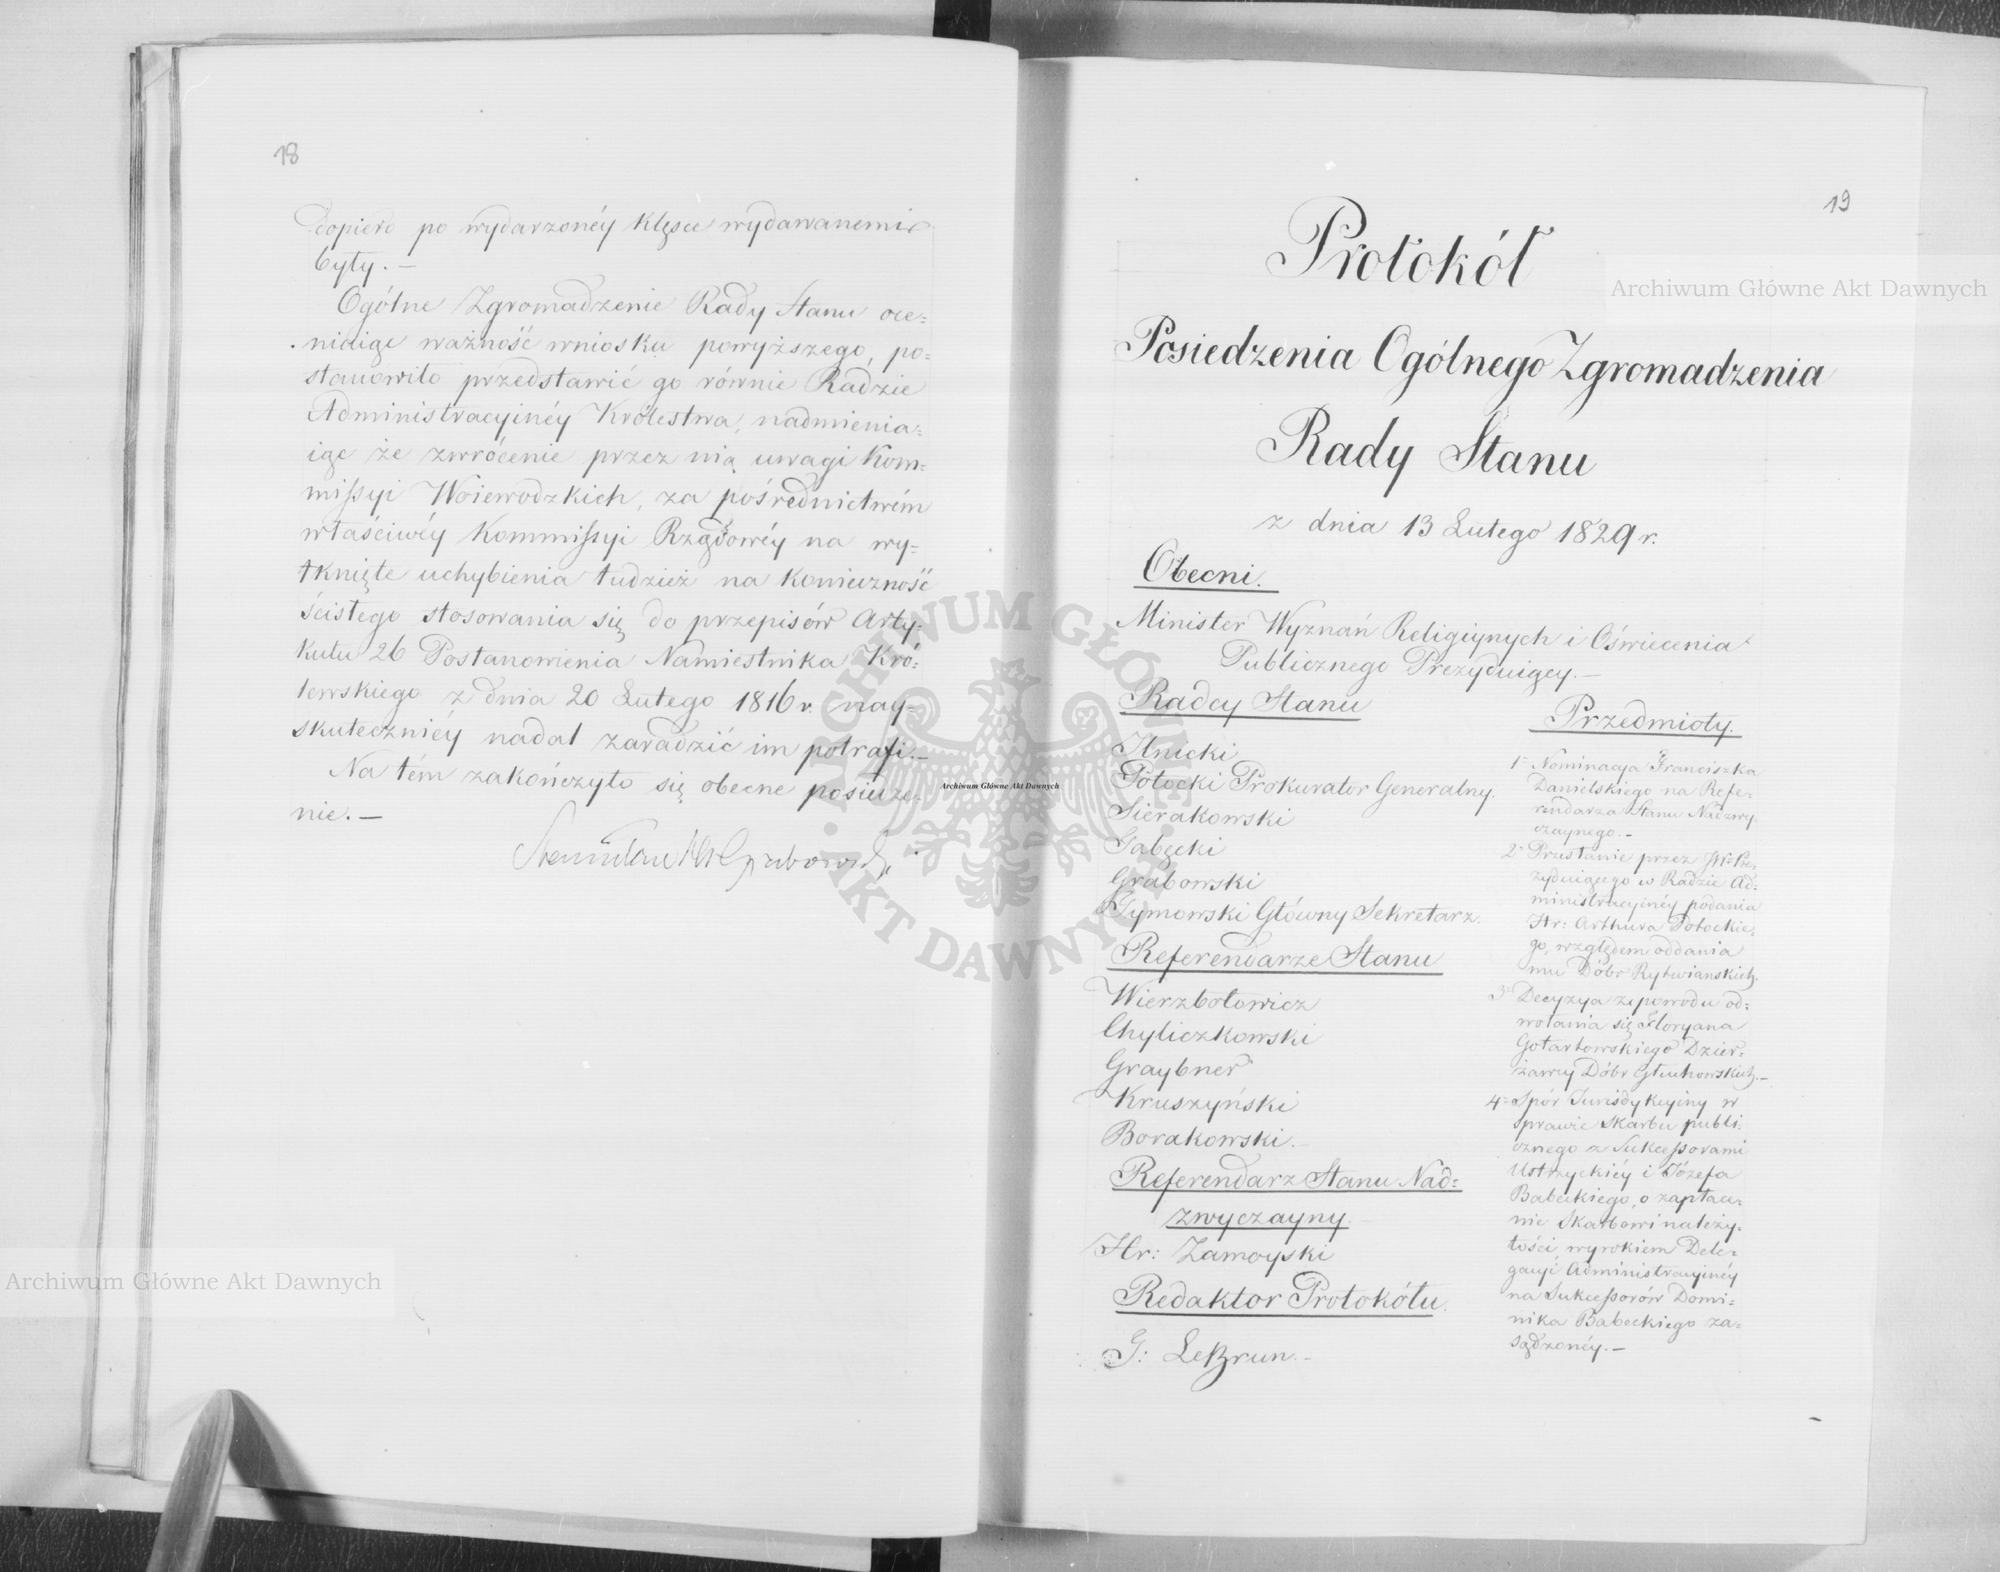 18
dopiero po wydarzonéy klęsce wydawanemi
były. —
Ogólne Zgromadzenie Rady Stanu oce=
niaiąc ważność wniosku powyższego, po=
stanowiło przedstawić go równie Radzie
Administracyinéy Królestwa, nadmienia=
iąc że zwrócenie przez nią uwagi Kom=
missyi Woiewodzkich, za pośrednictwém
właściwéy Kommissyi Rządowéy na wy=
tknięte uchybienia tudzież na konieczność
ścisłego stosowania się do przepisów Arty=
kułu 26 Postanowienia Namiestnika Kró=
lewskiego z dnia 20 Lutego 1816 r. nay=
skuteczniéy nadal zaradzić im potrafi. —
Na tém zakończyło się obecne posiedze=
nie. —
19
Protokół
Posiedzenia Ogólnego Zgromadzenia
Rady Stanu
z dnia 13 Lutego 1829 r.
Obecni.
Minister Wyznań Religiynych i Oświecenia
Publicznego Prezyduiący. —
Radcy Stanu
Ilnicki
Potocki Prokurator Generalny.
Sierakowski
Gałęcki
Grabowski
Tymowski Główny Sekretarz.
Referendarze Stanu
Wierzbołowicz
Chyliczkowski
Graybner
Kruszyński
Borakowski. —
Referendarz Stanu Nad=
zwyczayny.
Hr: Zamoyski
Redaktor Protokółu.
G: LeBrun. —
Przedmioty.
1= Nominacya Franciszka
Danielskiego na Refe=
rendarza Stanu Nadzwy=
czaynego. —
2= Przesłanie przez JW= Pre=
zyduiącego w Radzie Ad=
ministracyinéy podania
Hr: Arthura Potockie=
go, względem oddania
mu Dóbr Rytwianskich.
3= Decyzya z powodu od=
wołania się Floryana
Gotartowskiego Dzier=
żawcy Dóbr Głuchowskich. —
4= Spór Jurisdykcyiny w
sprawie Skarbu publi=
cznego z Sukcessorami
Ustrzyckiéy i Józefa
Babeckiego, o zapłace=
nie Skarbowi należy=
tości wyrokiem Dele=
gacyi Administracyinéy
na Sukcessorów Domi=
nika Babeckiego za=
sądzonéy. —
Archiwum Główne Akt Dawnych
Archiwum Główne Akt Dawnych
Archiwum Główne Akt Dawnych
ARCHIWUM GŁÓWNE
AKT DAWNYCH